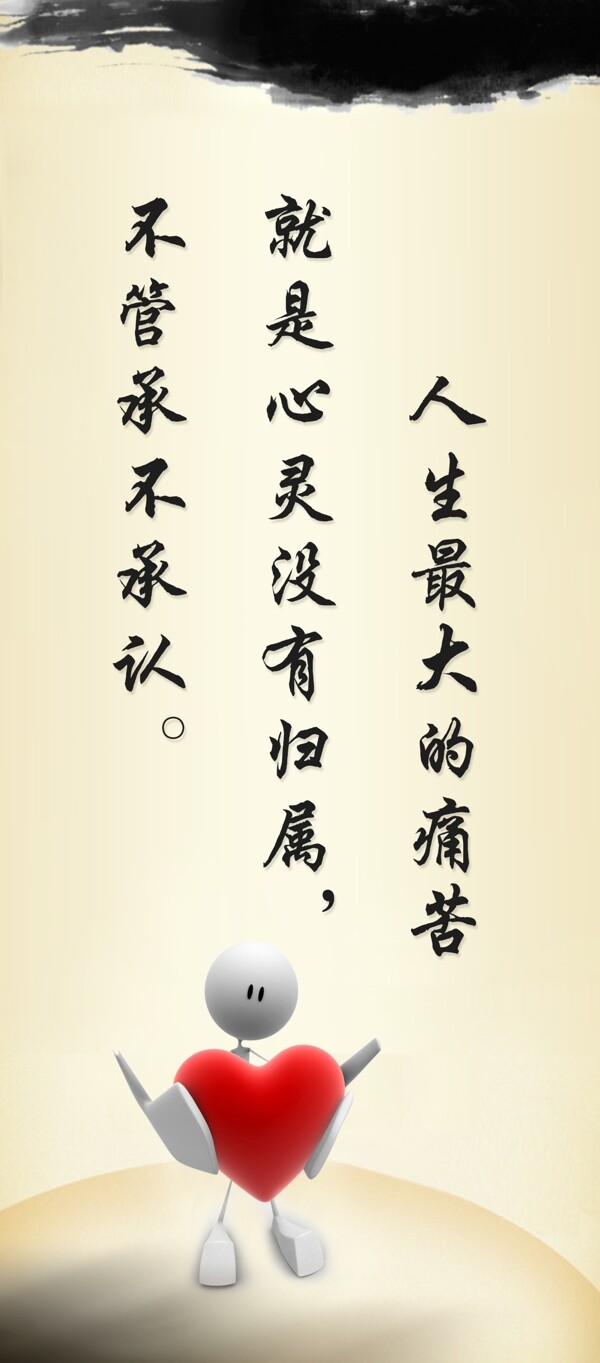 人生最大的痛苦
就是心灵没有归属，
不管承不承认。